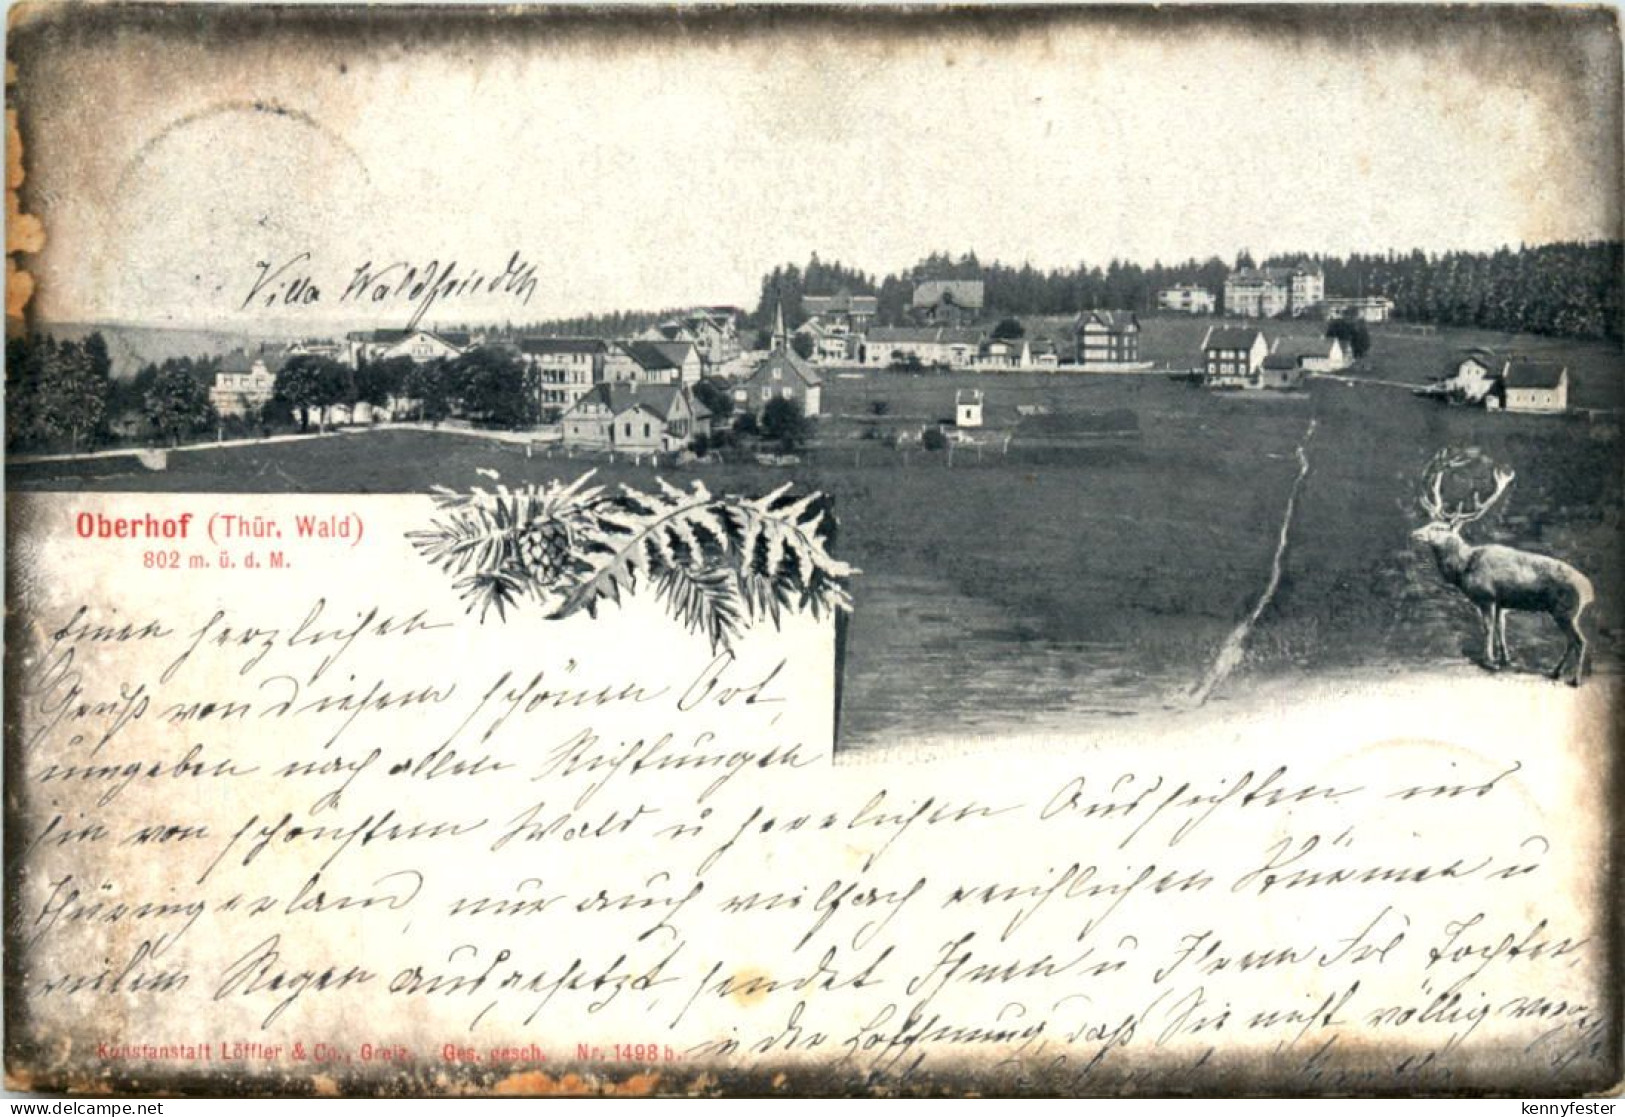 Villa Waldfriedth
Oberhof (Thür. Wald)
802 m. ü. d. M.
Einen herzlichen
Gruß von diesem schönen Ort,
umgeben nach allen Richtungen
hin von schönstem Wald u herrlichen Aussichten ins
Thüringerland, nur auch vielfach reichlichen Stürmen u
vielem Regen ausgesetzt, sendet Ihnen u Ihrem Frl Tochter,
in der Hoffnung, daß Sie nicht völlig
Kunstanstalt Löffler & Co., Greiz. Ges. gesch. Nr. 1498 b.
www.delcampe.net
kennyfester